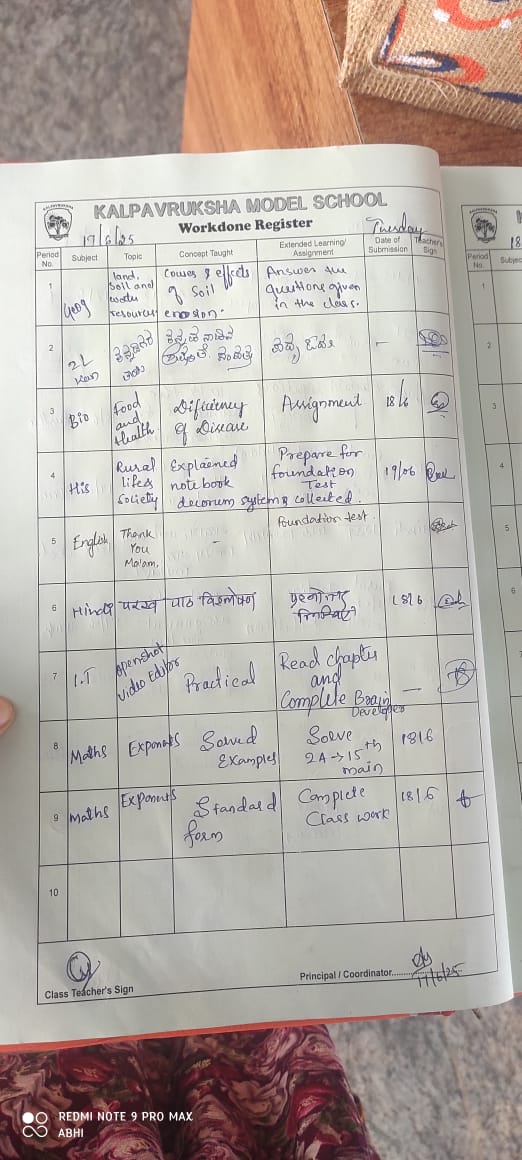 KALPAVRUKSHA MODEL SCHOOL
Workdone Register
17/6/25
Tuesday
Period No. Subject Topic Concept Taught Extended Learning/ Assignment Date of Submission Teacher's Sign
1 Geog land, Soil and resources Causes & effects of Soil erosion. Answer the questions given in the class.
2 2L Kan -
3 Bio Food and Health Dificiency of Disease Assignment 18/6
4 His Rural life & Society Explained note book decorum system & collected. Prepare for foundation Test 19/06
5 English Thank You Ma'am. - Foundation test.
6 Hindi परख पाठ विश्लेषण 18/6
7 I.T openshot Video Editor Practical Read chapter and Complete Brain Developer —
8 Maths Exponents Solved Examples Solve 2A → 15th main 18/6
9 Maths Exponents Standard form Complete Class work 18/6
10
Class Teacher's Sign
Principal / Coordinator
17/6/25
18
Period No. Subjec
1
2
3
4
5
6
7
8
9
10
REDMI NOTE 9 PRO MAX
ABHI